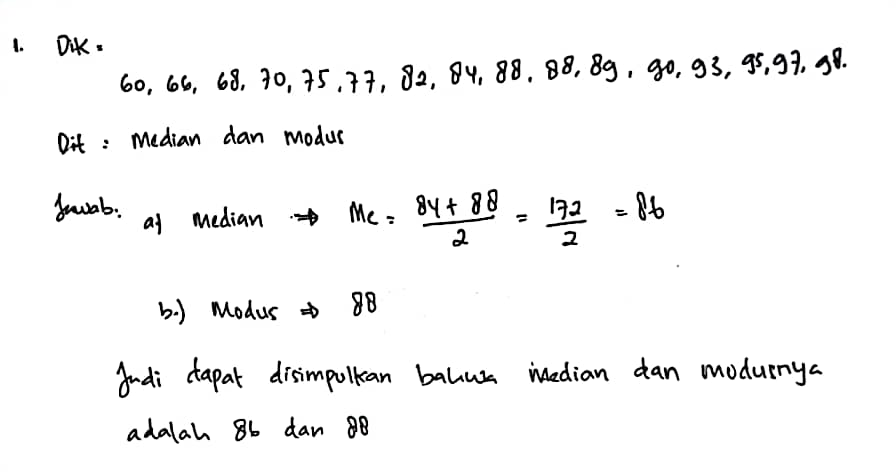 1. Dik =
60, 66, 68, 70, 75, 77, 82, 84, 88, 88, 89, 90, 93, 95, 97, 98.
Dit : Median dan Modus
Jawab:
a) Median ⇒ Me = 84 + 88 / 2 = 172 / 2 = 86
b.) Modus ⇒ 88
Jadi dapat disimpulkan bahwa median dan modusnya
adalah 86 dan 88